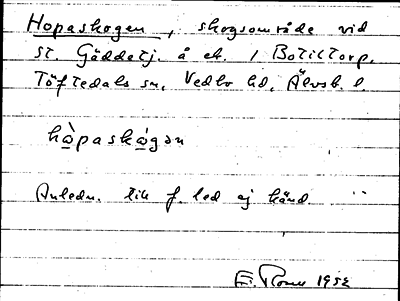 Hopaskogen, skogsområde vid
st. Gäddetj. å et. 1 Botiltorp.
Töftedals sn, Vedbo hd, Älvsb. l.
hò̲paskó̲gən
Anledn. till f. led ej känd.
1952